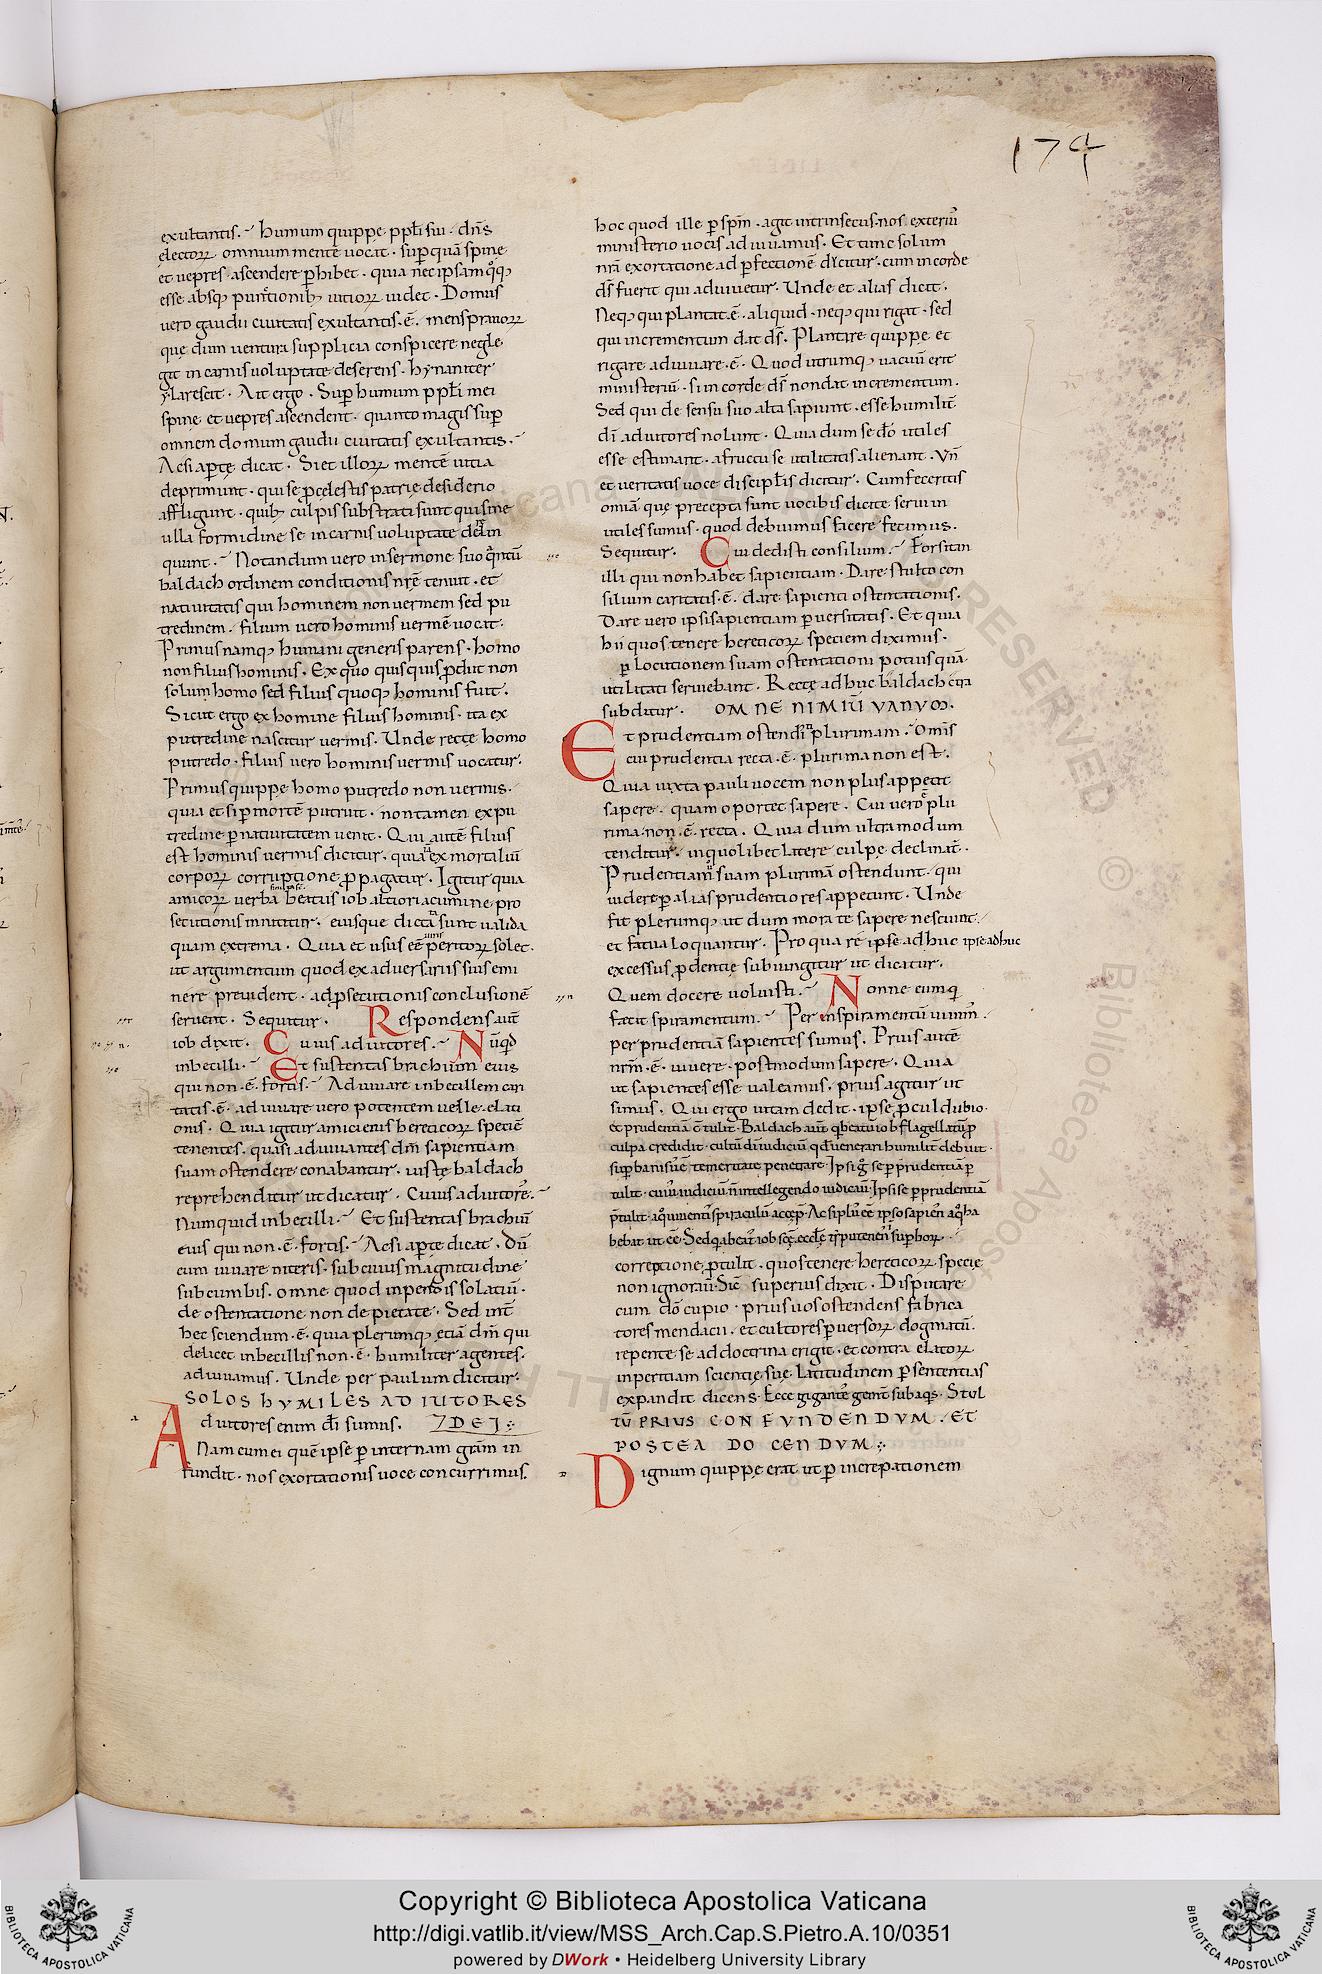 174
exultantis. Humum quippe ppli sui. dns
electoꝝ omnium mentē uocat. sup quā spine
et uepres ascendere ꝑhibet. quia nec ipsam q̊q;
esse absq; punctionib; uitioꝝ uidet. Domus
uero gaudii ciuitatis exultantis .ē. mens prauoꝝ
que dum uentura supplicia conspicere negle
git in carnis uoluptate deserens. hynaniter
ylarescit. Ait ergo. Sup humum ppli mei
spine et uepres ascendent. quanto magis sup
omnem domum gaudii ciuitatis exultantis.
Ac si aꝑte dicat. Si et illoꝝ mentē uitia
deprimunt. qui se ꝓ celestis patrie desiderio
affligunt. quib; culpis substrati sunt qui sine
ulla formidine se in carnis uoluptate
quunt. Notandum uero in sermone suo
baldach ordinem conditionis nrē tenuit. et
natiuitatis qui hominem non uermem sed pu
tredinem. filium uero hominis uermē uocat.
Primus namq; humani generis parens. homo
non filius hominis. Ex quo quisquis ꝓdiit non
solum homo sed filius quoq; hominis fuit.
Sicut ergo ex homine filius hominis. ita ex
putredine nascitur uermis. Unde recte homo
putredo. filius uero hominis uermis uocatur.
Primus quippe homo putredo non uermis.
quia etsi ꝑ mortē putruit. non tamen ex pu
tredine ꝑ natiuitatem uenit. Qui autē filius
est hominis uermis dicitur. quia ex mortaliū
corporꝝ corruptione ꝓpagatur. Igitur quia
amicoꝝ uerba beatus iob altiori acumine pro
secutionis innititur. eiusque dicta sunt ualida
quam extrema. Quia et usus eē peritoꝝ solet.
ut argumentum quod ex aduersariis suis emi
nere preuident. ad ꝓsecutionis conclusionē
seruent. Sequitur. Respondens aut̄
iob dixit. Cuius adiutor es. Nūqd
inbecilli. Et sustentas brachium eius
qui non .ē. fortis. Adiuuare inbecillem cari
tatis .ē. adiuuare uero potentem uelle. elati
onis. Quia igitur amici eius hereticoꝝ speciē
tenentes. quasi adiuuantes dm̄ sapientiam
suam ostendere conabantur. iuste baldach
reprehenditur ut dicatur. Cuius adiutor es.
Numquid inbecilli. Et sustentas brachiū
eius qui non .ē. fortis. Ac si aꝑte dicat. Dū
eum iuuare niteris. sub cuius magnitudine
subcumbis. omne quod inpendis solatiū.
de ostentatione non de pietate. Sed int̄
hec sciendum .ē. quia plerumq; etiā dm̄ qui
delicet inbecillis non .ē. humiliter agentes.
adiuuamus. Unde per paulum dicitur.
SOLOS HVMILES ADIVTORES
Adiutores enim di sumus. DEI
Nam cum ei quē ipse ꝑ internam grām in
fundit. nos exortationis uoce concurrimus.
hoc quod ille ꝑ spm̄. agit intrinsecus. nos exteriu᷒
ministerio uocis adiuuamus. Et tunc solum
nrā exortatione ad ꝑfectionē ducitur. cum in corde
ds̄ fuerit qui adiuuetur. Unde et alias dicit.
Neq; qui plantat .ē. aliquid. neq; qui rigat. sed
qui incrementum dat ds̄. Plantare quippe et
rigare adiuuare .ē. Quod utrumq; uacuū erit
ministeriū. si in corde ds̄ non dat incrementum.
Sed qui de sensu suo alta sapiunt. esse humilit̄
di adiutores nolunt. Quia dum se do utiles
esse estimant. a fructu se utilitatis alienant. Vn̄
et ueritatis uoce discipulis dicitur. Cum feceritis
omīa que precepta sunt uobis dicite serui in
utiles sumus. quod debuimus facere fecimus.
Sequitur. Cui dedisti consilium. Forsitan
illi qui non habet sapientiam. Dare stulto con
silium caritatis .ē. dare sapienti ostentationis.
Dare uero ipsi sapientiam ꝑuersitatis. Et quia
hii quos tenere hereticoꝝ speciem diximus.
ꝑ locutionem suam ostentationi potius quā
utilitati seruiebant. Recte adhuc baldach cōta
subditur. OMNE NIMIŪ VANVM.
Et prudentiam ostendisti plurimam. Omīs
cui prudentia recta .ē. plurima non est.
Quia iuxta pauli uocem non plus appetit
sapere. quam oportet sapere. Cui uero plu
rima non .ē. recta. Quia dum ultra modum
tenditur. in quolibet latere culpe declinat̄.
Prudentiam suam plurimā ostendunt. qui
uidere ꝑ alias prudentiores appetunt. Unde
fit plerumq; ut dum morate sapere nesciunt.
et fatua loquantur. Pro qua re ipse adhuc ipse adhuc
excessus prudentie subiungitur ut dicatur.
Quem docere uoluisti. Nonne eum q̄
fecit spiramentum. Per inspiramentū uiuim᷒.
per prudentiā sapientes sumus. Prius autē
nrm̄ .ē. uiuere. postmodum sapere. Quia
ut sapientes esse ualeamus. prius agitur ut
simus. Qui ergo uitam dedit. ipse ꝓculdubio
et prudentiā
culpa credidit.
correptione ꝓtulit. quos tenere hereticoꝝ specie
non ignorau̅. Sic superius dixit. Disputare
cum do cupio. prius uos ostendens fabrica
tores mendacii. et cultores ꝑuersoꝝ dogmatū.
repente se ad doctrina erigit. et contra elatoꝝ
inperitiam scientie sue latitudinem ꝑ sententias
expandit dicens. Ecce gigantes gemt̄ sub aqis. Stul
TŪ PRIUS CONFVNDENDVM. ET
POSTEA DOCENDVM
Dignum quippe erat ut ꝑ increpationem
Copyright © Biblioteca Apostolica Vaticana
http://digi.vatlib.it/view/MSS_Arch.Cap.S.Pietro.A.10/0351
powered by DWork • Heidelberg University Library
BIBLIOTECA APOSTOLICA VATICANA
BIBLIOTECA APOSTOLICA VATICANA